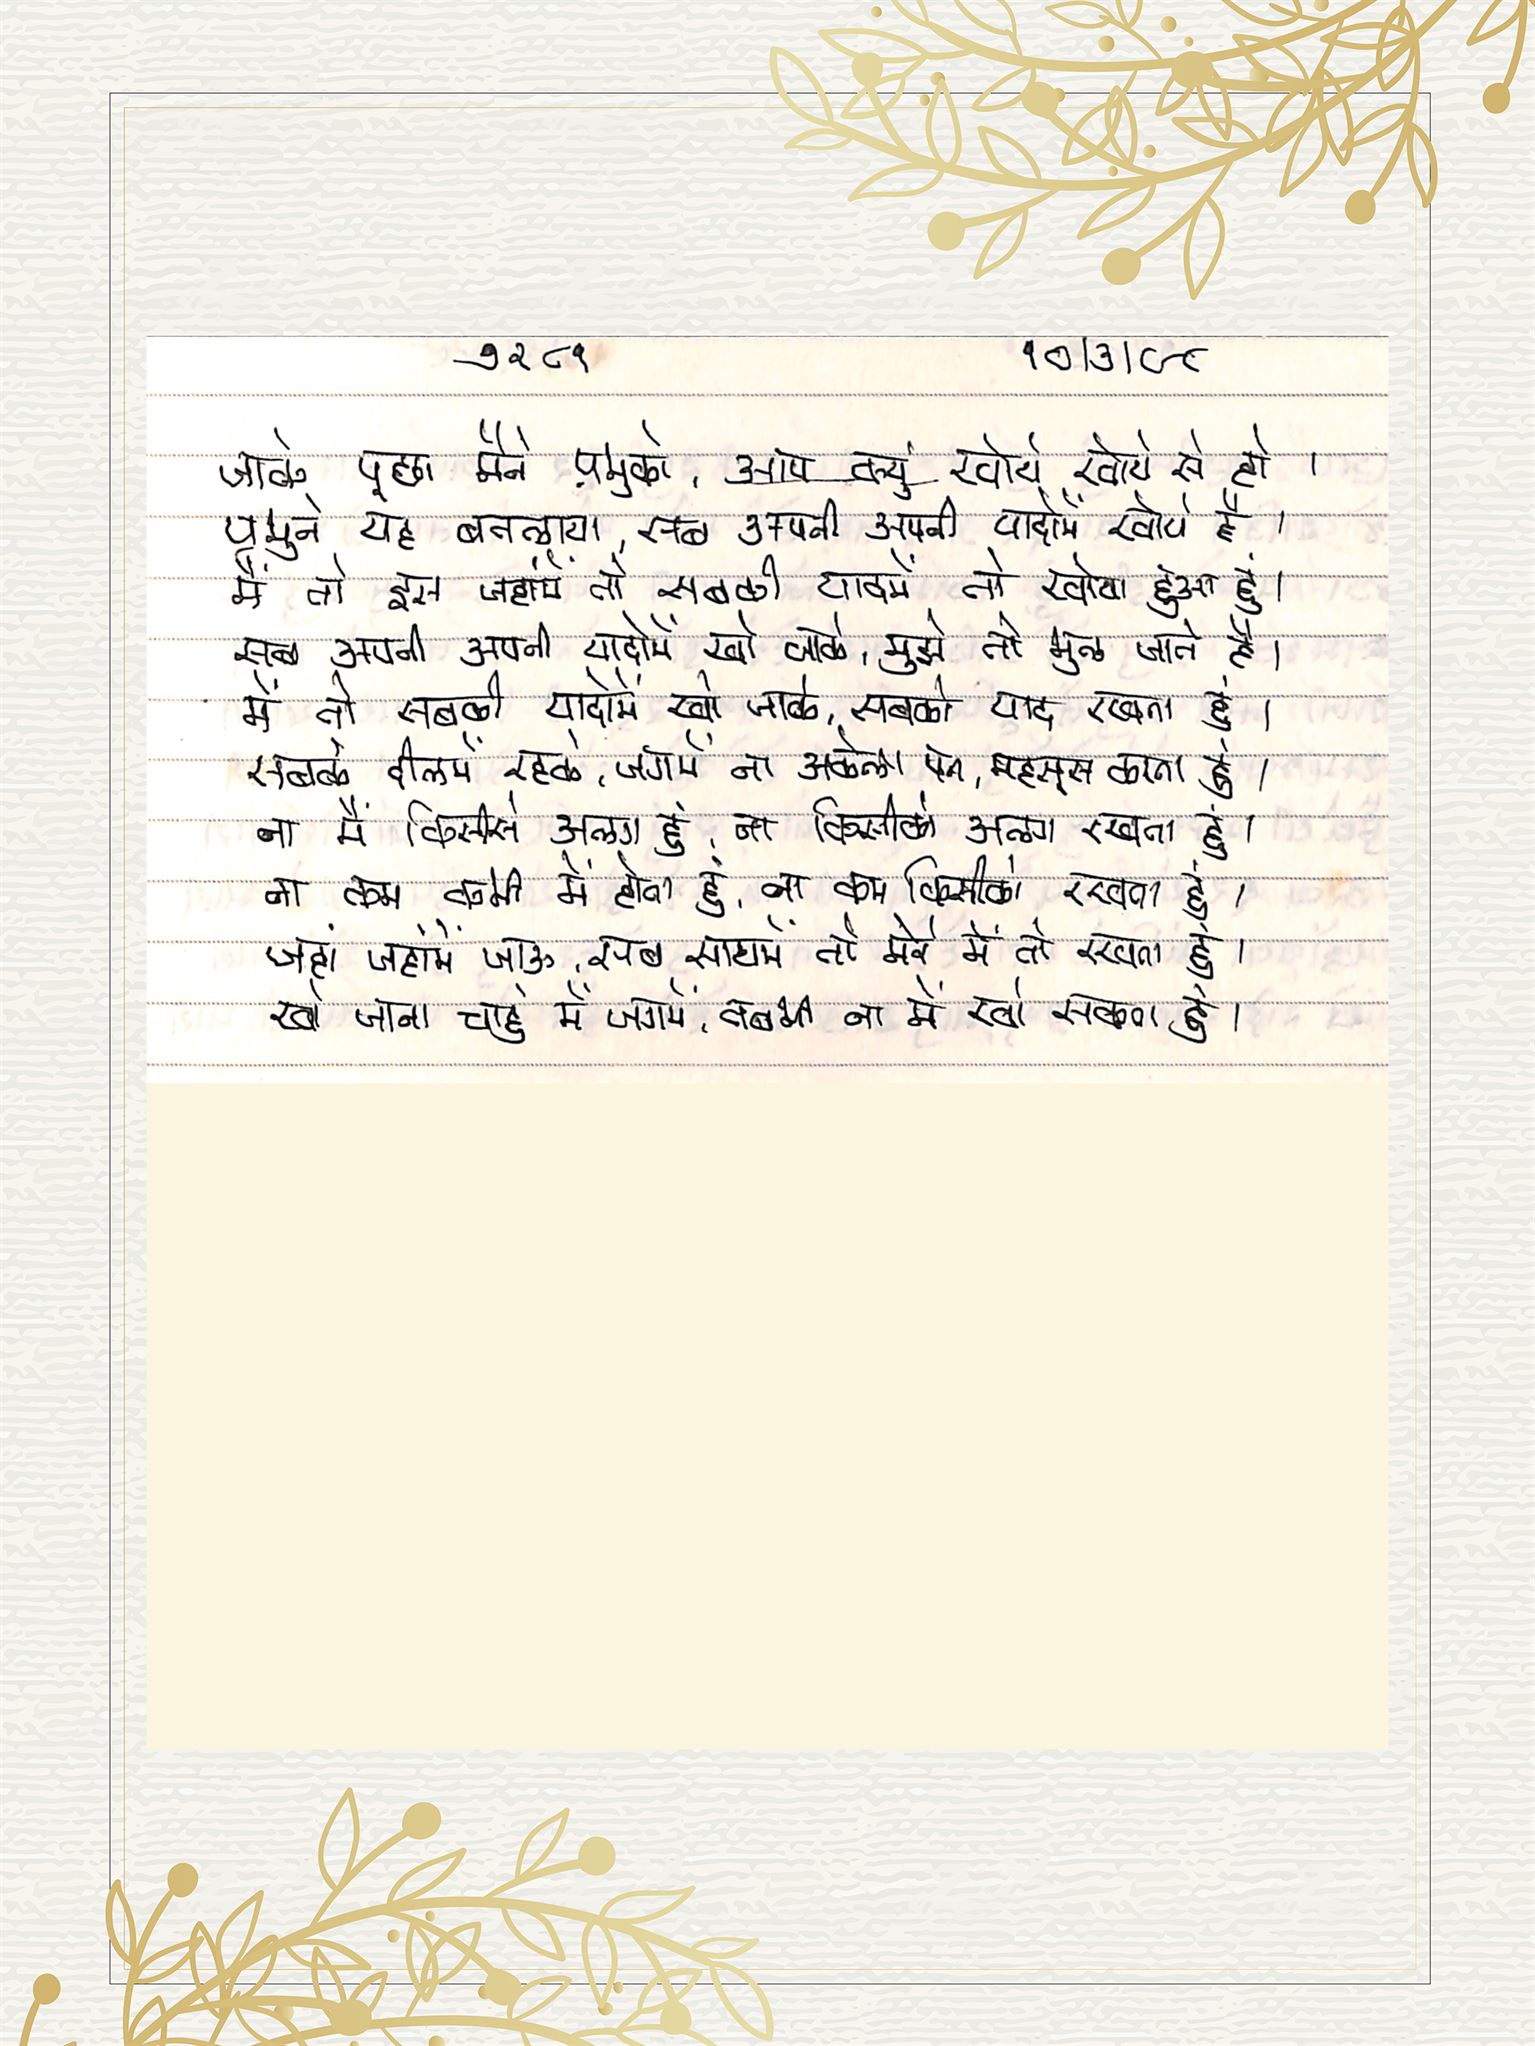 ७२८१ १०/३/८९
जाके पूछा मैंने प्रभुको, आप क्युं खोये खोये से हो ।
प्रभुने यह बतलाया, सब अपनी अपनी यादोंमें खोये है ।
मैं तो इस जहांमें तो सबकी यादमें तो खोया हुआ हुं।
सब अपनी अपनी यादोंमें खो जाके, मुझे तो भुल जाते है।
में तो सबकी यादोंमें खो जाके, सबको याद रखता हुं ।
सबके दीलमें रहके, जगमें ना अकेला पन, महसूस करता हुं ।
ना मैं किसीसे अलग हुं, ना किसीको अलग रखता हुं ।
ना कम कभी में होता हुं, ना कम किसीको रखता हुं ।
जहां जहांमें जाऊ, सब साथमें तो मेरे में तो रखता हुं ।
खो जाना चाहुं में जगमें, तबभी ना में खो सकता हुं ।